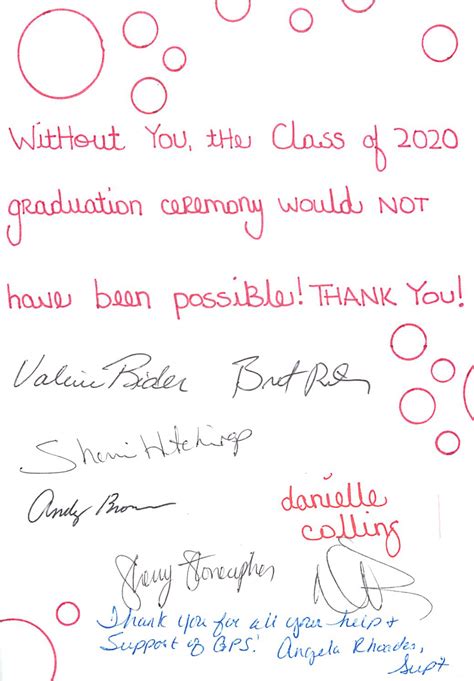 Without You, the Class of 2020
graduation ceremony would NOT
have been possible! THANK YOU!
Valerie Rider Bret
Sherri Hitchings
Andy Brown
danielle
colling
Sherry Stonecipher
Thank you for all your help &
Support of BPS! Angela Rhoades,
Supt